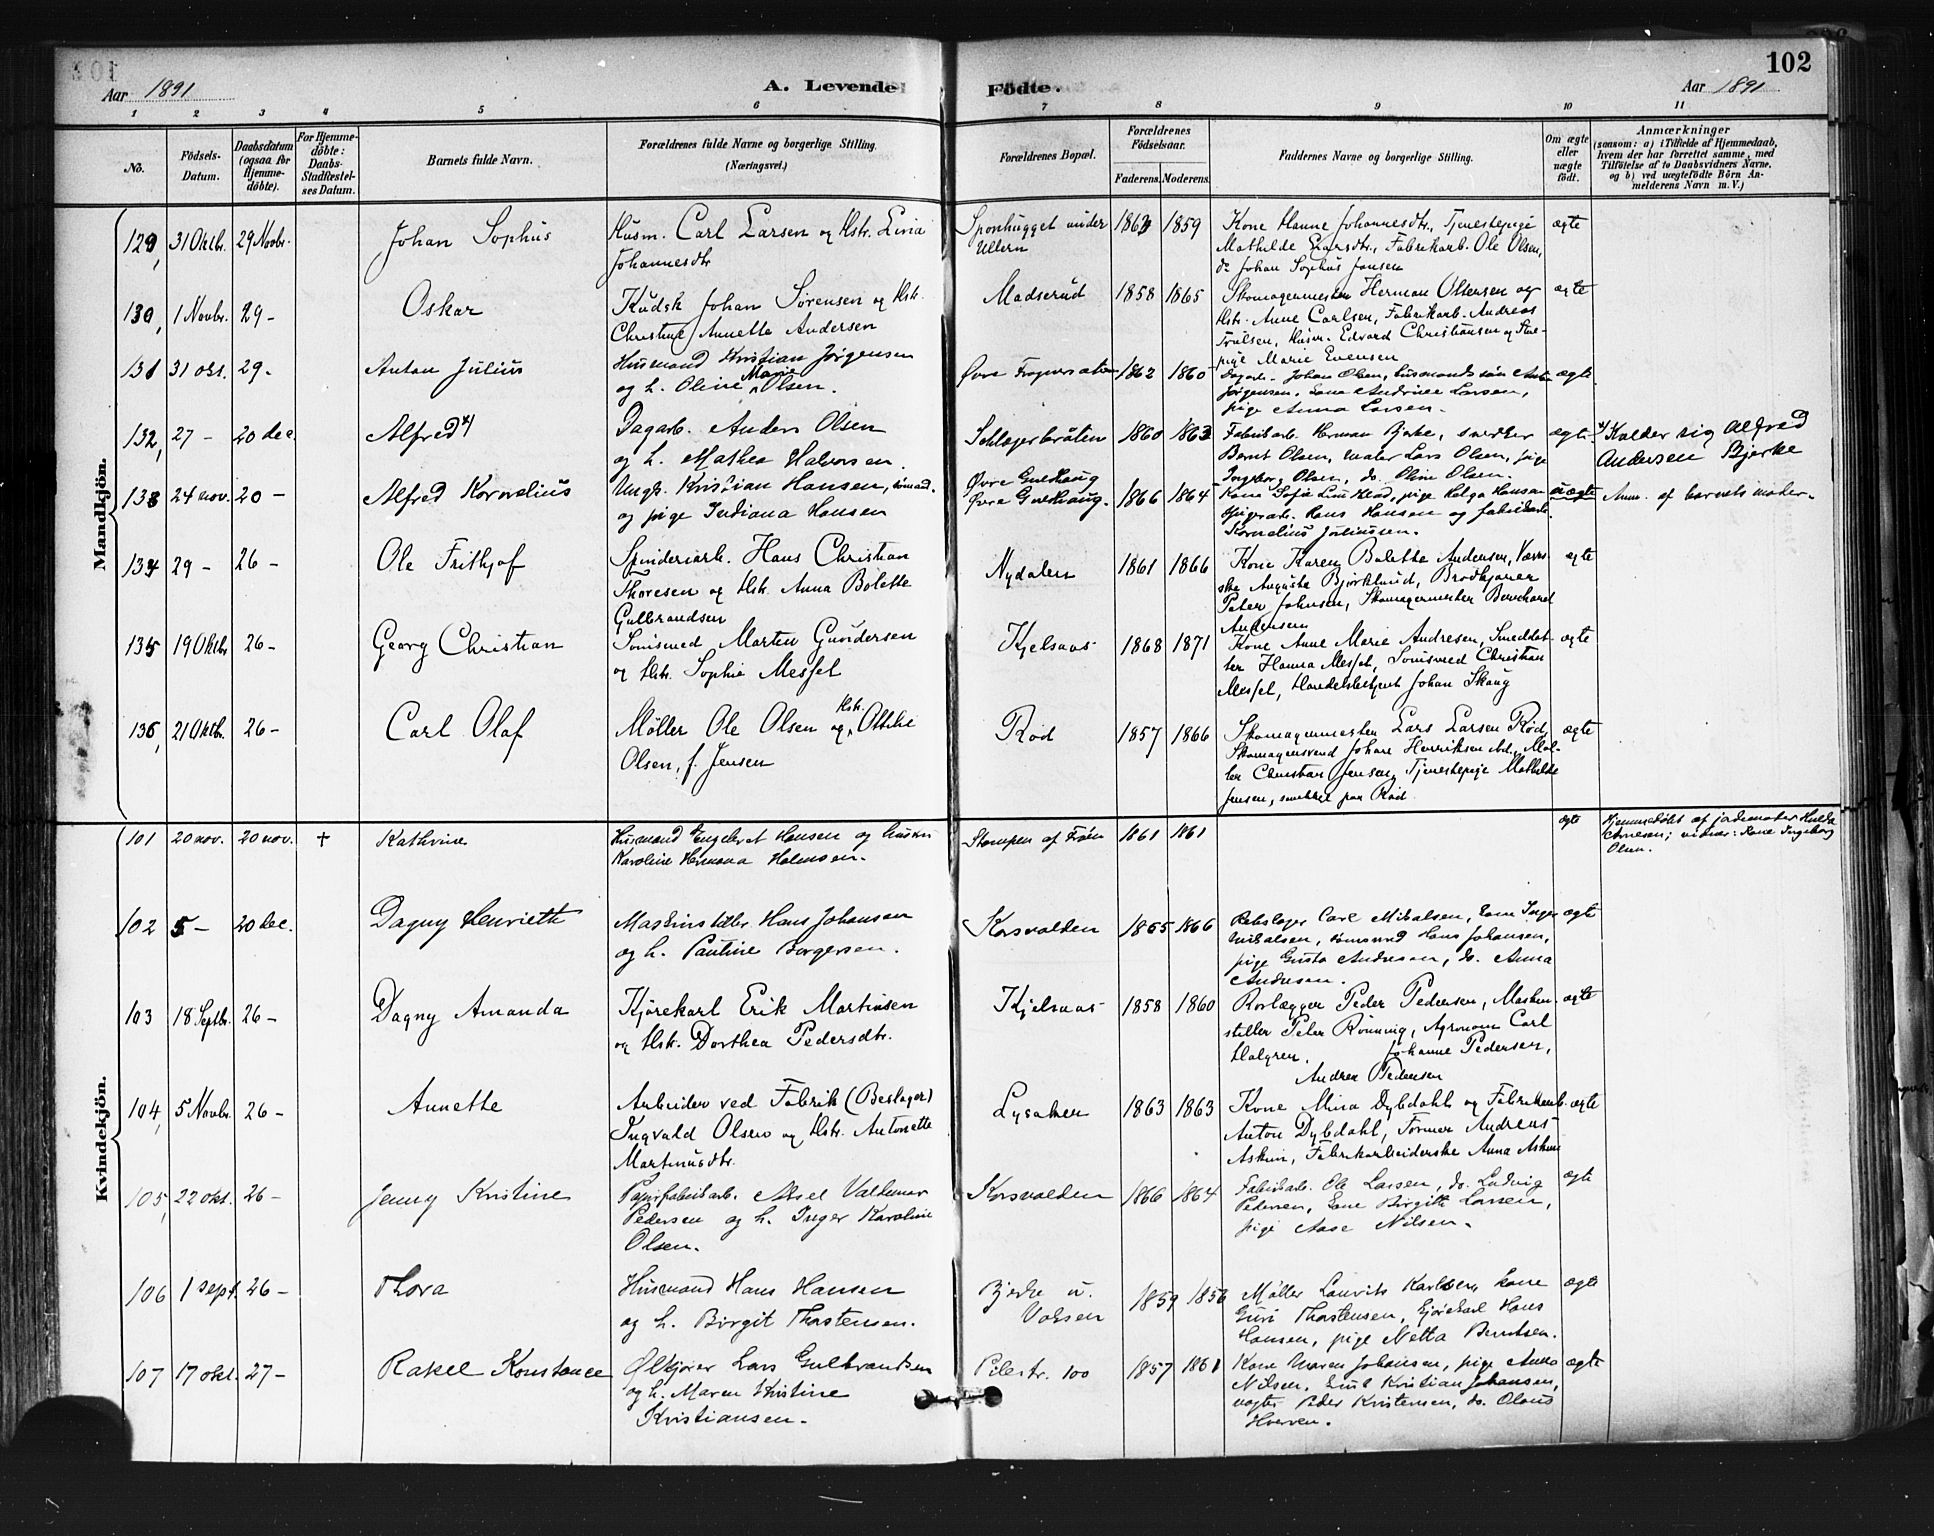 102
Aar 1891
A. Levende Födte.
Aar 1891
1 2 3 4 5 6 7 8 9 10 11
No.
Födsels-Datum.
Daabsdatum (ogsaa for Hjemme-döbte).
For Hjemme-döbte: Daabs-Stadfæstel-ses Datum.
Barnets fulde Navn.
Forældrenes fulde Navne og borgerlige Stilling. (Næringsvei.)
Forældrenes Bopæl.
Forældrenes Födselsaar.
Faderens. Moderens.
Faddernes Navne og borgerlige Stilling.
Om ægte eller uægte födt.
Anmærkninger
(saasom: a) i Tilfælde af Hjemmedaab,
hvem der har forrettet samme, med
Tilföielse af to Daabsvidners Navne,
og b) ved uægtefödte Börn An-
melderens Navn m. V.)
Mandkjön.
129, 31 Oktbr. 29 Novbr. Johan Sophus Husm. Carl Larsen og Hstr. Lina Sponhugget under 1863 1859 Kone Hanne Johannesdtr., Tjenestepige ægte
Johannesdtr Ullern Mathilde Larsdtr., Fabrikarb. Ole Olsen,
do Johan Sophus Jensen
130, 1 Novbr. 29 - Oskar Kudsk Johan Sørensen og Hstr. Madserud 1858 1865 Skomagermester Herman Ottersen og ægte
Christine Annette Andersen Hstr. Anne Carlsen, Fabrikarb. Andreas
Trulsen, Husm. Edvard Christiansen og
pige Marie Evensen
131 31 okt. 29. Anton Julius Husmand Kristian Jørgensen Øvre 1862 1860 Dagarb. Johan Olsen, husmandssøn ægte
og h. Oline Marie Olsen. Jørgensen, kone Andrine Larsen,
pige Anna Larsen.
132, 27 - 20 dec. Alfred x) Dagarb. Anders Olsen Schlagerbråten 1860 1863 Fabrikarb. Herman Bjerke, snedker ægte. x) Kalder sig Alfred
og h. Mathea Halvorsen. Bernt Olsen, maler Lars Olsen, pige Andersen Bjerke
Ingeborg Olsen, do. Oline Olsen.
133 24 nov. 20 - Alfred Kornelius Ungk. Kristian Hansen, Øvre Grefhaug 1866 1864 Kone Sofie, pige Helga Hansen uægte Anm. af barnets moder.
og pige Indiana Hansen Øvre Grefhaug. Hans Hansen og fabrikarb.
Kornelius Joliussen.
134 29 - 26 - Ole Frithjof Spinderiarb. Hans Christian Nydalen 1861 1866 Kone Karen Bolette Andersen, ægte
Thoresen og Hstr. Anna Bolette Augusta Bjørklund, Brødkjører
Gulbrandsen Peter Johnsen, Skomagermester Bernhard
Andersen
135 19 Oktbr 26 - Georg Christian Sømsmed Morten Gundersen Kjelsaas 1868 1871 Kone Anne Marie Andresen, Smeddat- ægte
og Hstr. Sophie Messel ter Hanna Messel, Sømsmed Christian
Messel, Handelsbetjent Johan Skaug
136, 21 Oktbr. 26 - Carl Olaf Møller Ole Olsen og Hstr. Ottilie Rød 1857 1866 Skomagermester Lars Larsen Rød, ægte
Olsen, f. Jensen Skomagersvend Johan Henriksen, Møl-
ler Christian Jensen, Tjenestepige Mathilde
Jensen, paa Rød
Kvindekjön.
101 20 nov. 20 nov. † Kathrine Husmand Engebret Hansen og hustru Stampen af Frøen 1861 1861 ægte Hjemmedøbt af jordemoder Hulda
Karoline Hermana Halmsen. Arnesen; vidner: Kone Ingeborg
Olsen.
102 5 - 20 dec. Dagny Henriette Maskinstiller Hans Johansen Korsvolden 1855 1866 Rebslager Carl Mikalsen, kone Inger ægte
og h. Pauline Borgersen. Mikalsen, sømsmed Hans Johansen,
pige Gusta Andresen, do. Anna
Andresen.
103 18 Septbr. 26 - Dagny Amanda Kjørekarl Erik Martinsen Kjelsaas 1858 1860 Rørlægger Peder Pedersen, Maskin- ægte
og Hstr. Dorthea Pedersdtr. stiller Peter Rønning, Agronom Carl
Halgren. Johanne Pedersen,
Andrea Pedersen
104, 5 Novbr. 26 - Annette Arbeider ved Fabrik (Beslager) Lysaker 1863 1863 Kone Mina Dybdahl og Fabrikarb. ægte
Ingvald Olsen og Hstr. Antonette Anton Dybdahl, Former Andreas
Martinusdtr. Askim, Fabrikarbeiderske Anna Askim
105, 22 okt. 26 - Jenny Kristine Papirfabrikarb. Aksel Valdemar Korsvolden 1866 1864 Fabrikarb. Ole Larsen, do. Ludvig ægte
Pedersen og h. Inger Karoline Pedersen, kone Birgitte Larsen,
Olsen. pige Aase Nilsen.
106 1 sept. 26 - Thora Husmand Hans Hansen Bjerke u. 1859 1856 Møller Lauritz Karlsen, kone ægte
og h. Birgit Thorstensen. Voksen Guri Thorstensen, kjørekarl Hans
Hansen, pige Netta Berntsen.
107 17 okt. 27 - Rakel Konstance Ølkjører Lars Gulbrandsen Pilestr. 100 1857 1861 Kone Maren Johansen, pige Anna ægte
og h. Maren Kristine Nilsen, Kristian Johansen,
Kristiansen. vogter Peder Kristensen, do. Olaus
Hverven.